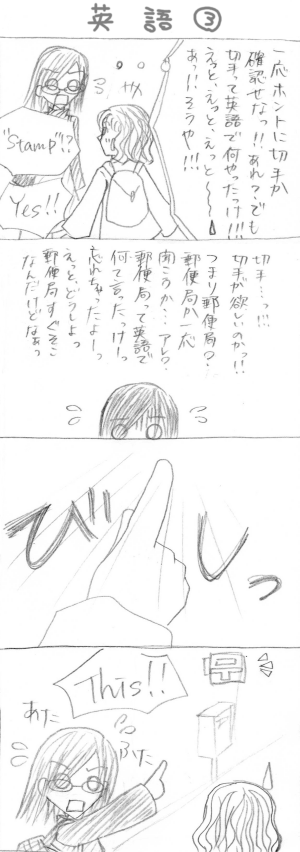 英語③
一応ホントに切手か
確認せなっ!!あれ?でも
切手って英語で何やったっけ!!!
えっと、えっと、えっと〜〜
あっ!!そうや!!!
"Stamp"!?
Yes!!
切手…っ!!!
切手が欲しいのかっ!!
つまり郵便局?
郵便局か一応
聞こうか…アレ?
郵便局って英語で
何て言ったっけーっ
忘れちゃったよーっ
えっと、どうしよっ
郵便局すぐそこ
なんだけどなぁっ
びしっ
This!!
あたふた